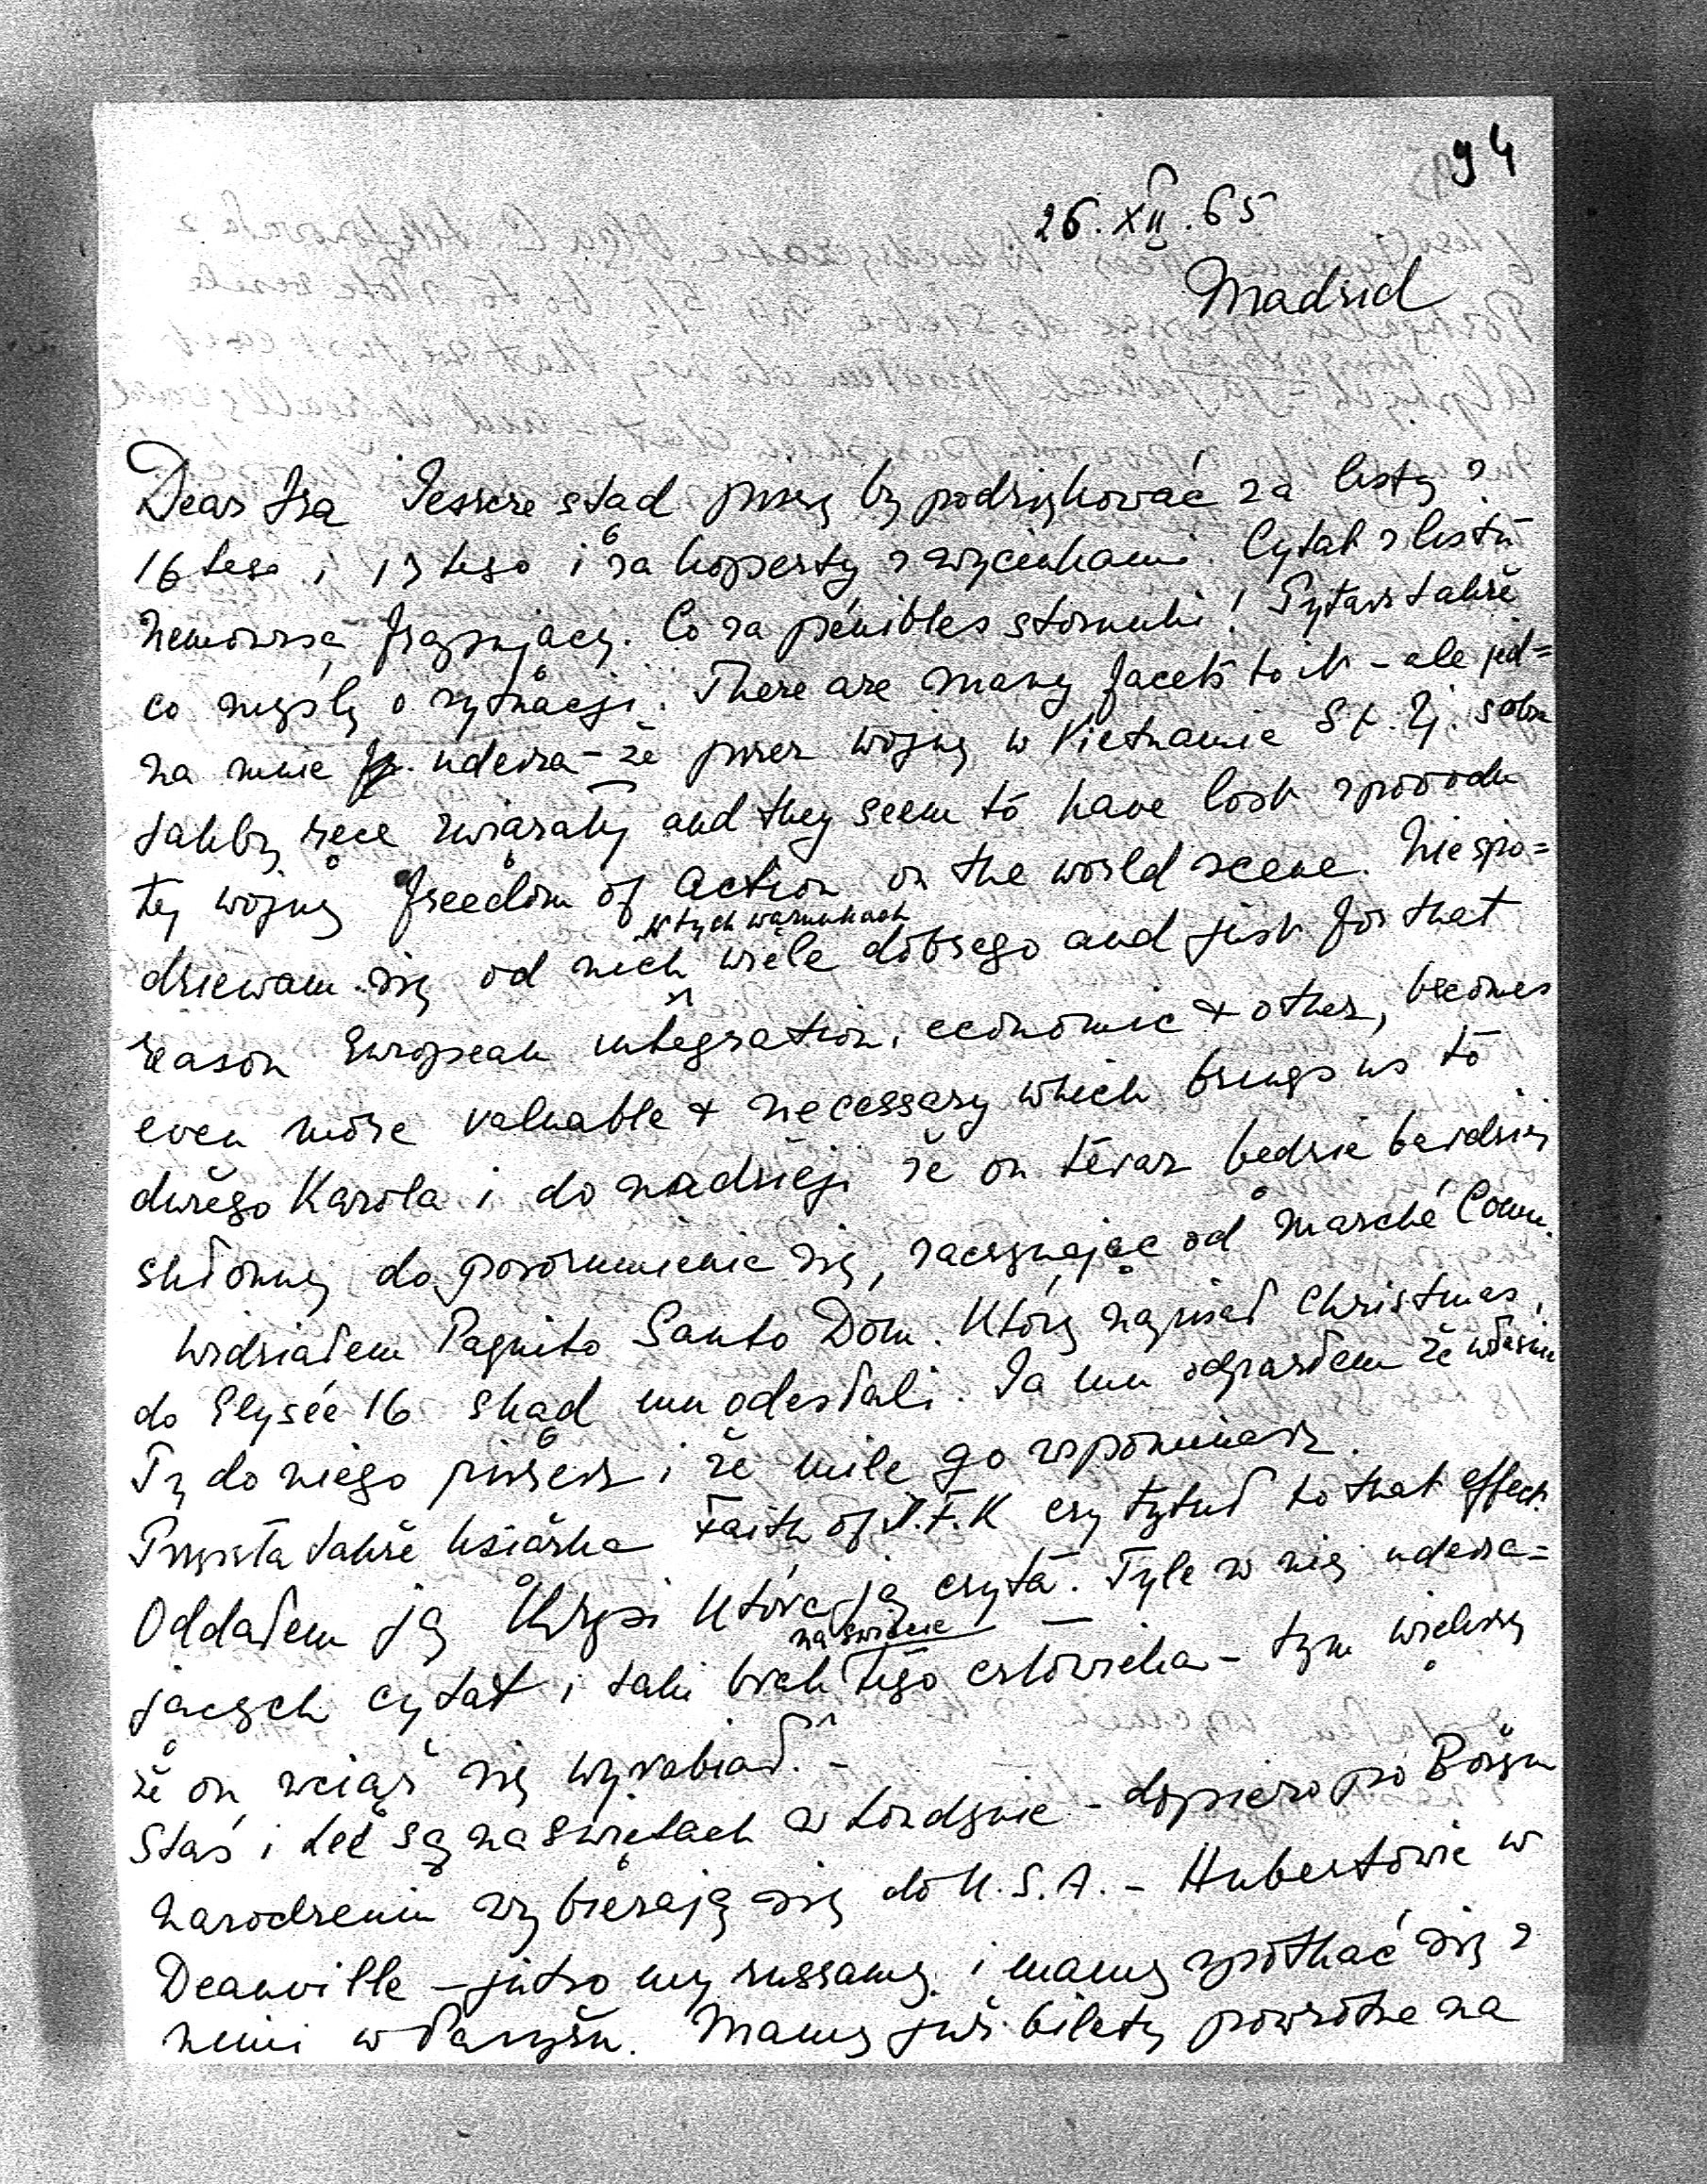 94
26.XII.65
Madrid
Dear Iza Jeszcze stąd piszę by podziękować za listy z
16tego i 17tego i za koperty z wycinkami. Cytat z listu
frapujący. Co za pénibles stosunki! Pytasz także
co myślę o sytuacji. There are many facets to it – ale jed=
na mnie uderza – że przez wojnę w Vietnamie St. Zj. sobie
jakby ręce związały and they seem to have lost z powodu
tej wojny freedom of action on the world scene. Nie spo=
dziewam się od nich w tych warunkach wiele dobrego and just for that
reason European integration, economic + other, becomes
even more valuable + necessary which brings us to
dużego Karola i do nadzieji że on teraz będzie bardziej
skłonny do porozumienie się, zaczynając od Marché Comm.
Widziałem Paquito Santo Dom. który napisał Christmas,
do Elysée 16 skąd mu odesłali. Ja mu odparłem że właśnie
Ty do niego piszesz i że mile go wspominasz.
Przyszła także książka Faith of J.F.K czy tytuł to that effect.
Oddałem ją Krysi która ją czyta. Tyle w niej uderza=
jących cytat i taki brak na świecie tego człowieka – tym większy
że on wciąż się wyrabiał. –
Staś i Lee są na świętach w Londynie – dopiero po Bożym
Narodzeniu wybierają się do U.S.A. – Hubertowie w
Deauville – jutro my ruszamy i mamy spotkać się z
nimi w Paryżu. Mamy już bilety powrotne na